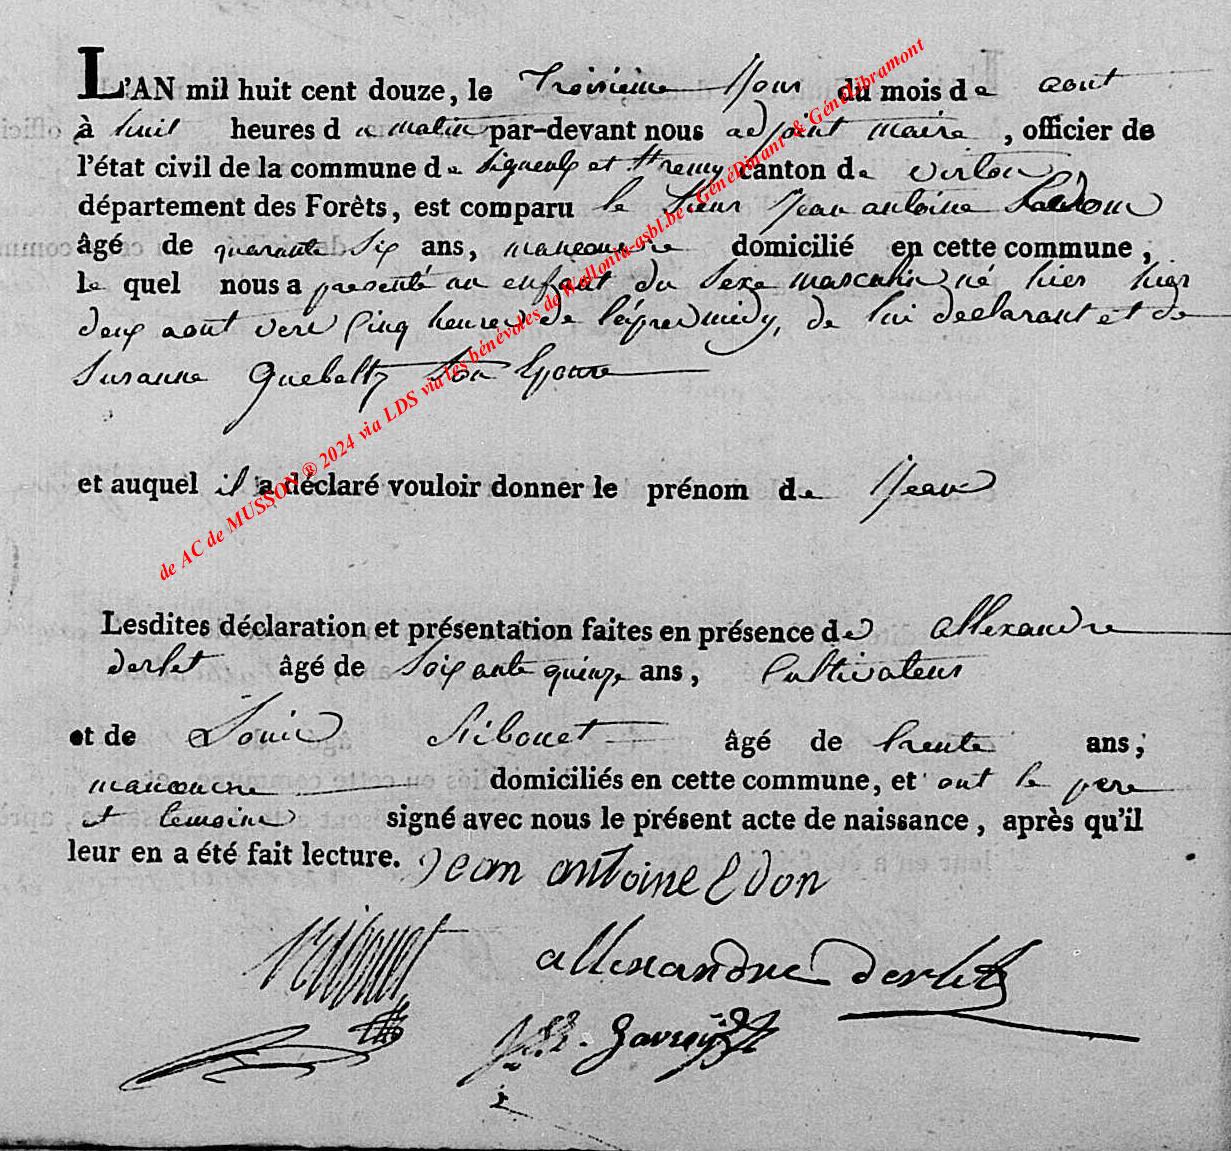 L'AN mil huit cent douze, le troisieme Jour du mois de aout
à huit heures du matin par-devant nous adjoint maire, officier de
l'état civil de la commune de Signeulx et Hremy canton de virton
département des Forêts, est comparu le Sieur Jean antoine
âgé de quarante Six ans, manoeuvre domicilié en cette commune,
le quel nous a presenté un enfant du Sexe masculin né hier hier
deux aout vers Cinq heures de l'apresmidy, de lui declarant et de
Susanne Guebeltz Son Epouse
et auquel il a déclaré vouloir donner le prénom de Jean
Lesdites déclaration et présentation faites en présence de allexandre
derlet âgé de Soixante quinze ans, Cultivateur
et de Louis Ribouet âgé de trente ans,
manoeuvre domiciliés en cette commune, et ont le pere
et temoins signé avec nous le présent acte de naissance, après qu'il
leur en a été fait lecture. Jean antoine Edon
ribouet allexandre derlet
de AC de MUSSON ® 2024 via LDS via les bénévoles de Wallonia-asbl.be - GénéDinant & Génélibramont